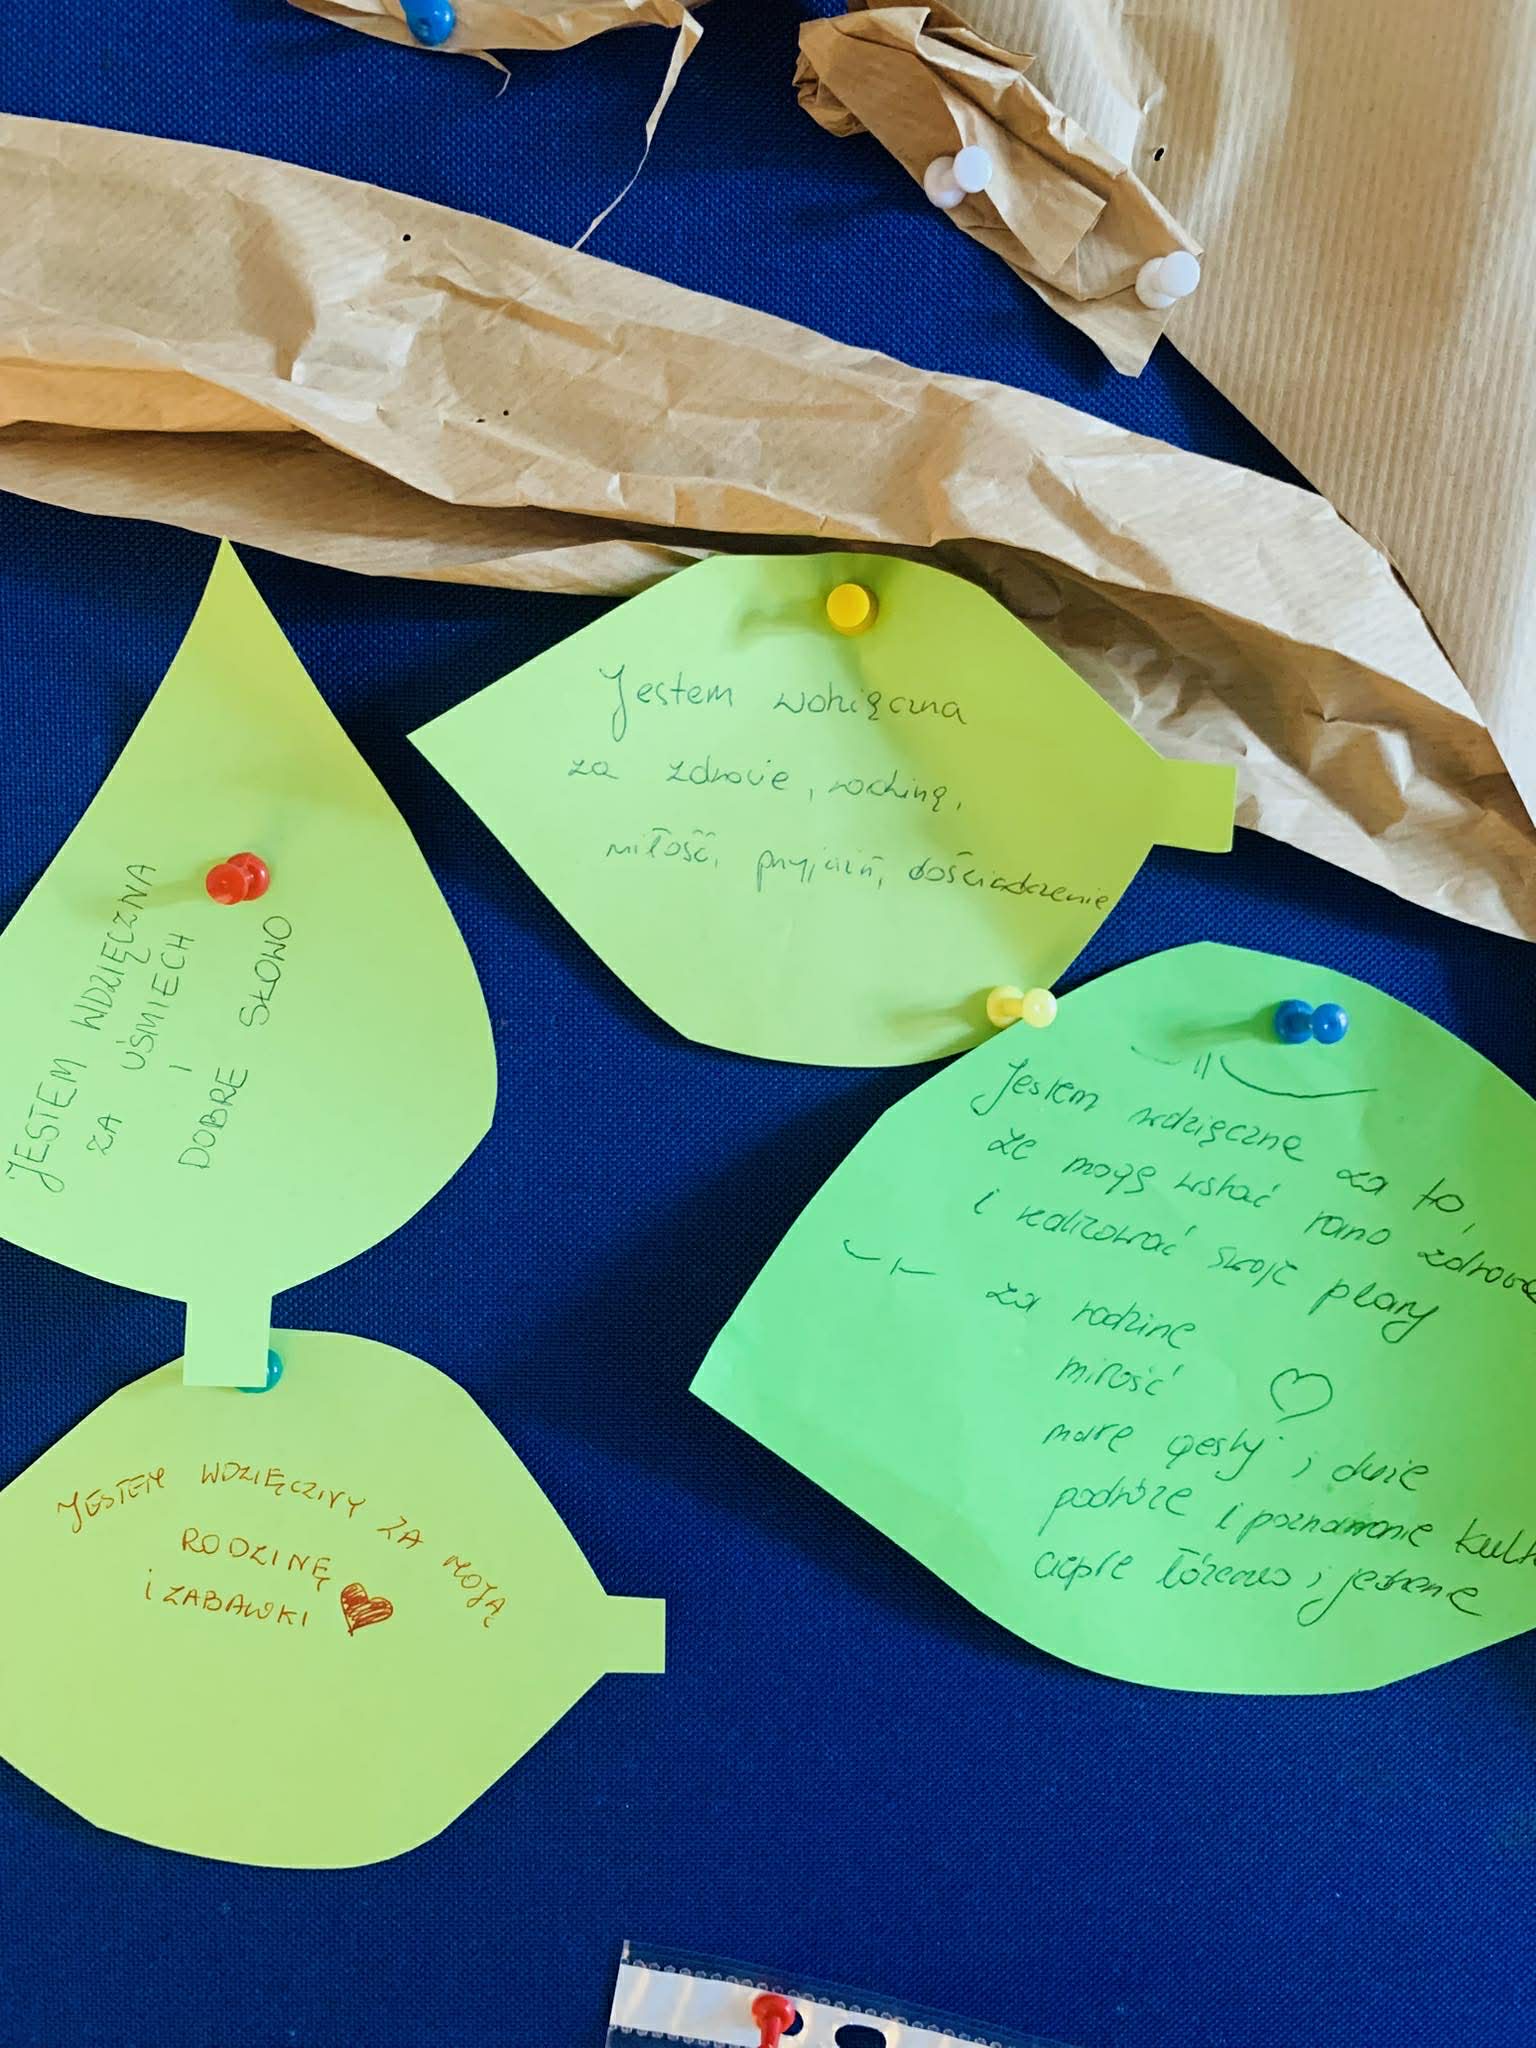 Jestem wdzięczna
za zdrowie, rodzinę,
miłość, przyjaźń, doświadczenie
JESTEM WDZIĘCZNA
ZA UŚMIECH
I
DOBRE SŁOWO
Jestem wdzięczna za to,
że mogę wstać rano zdrowa
i realizować swoje plany
-||- za rodzinę
miłość
małe gesty i duże
podróże i poznawanie
ciepłe łóżeczko i jedzenie
JESTEM WDZIĘCZNY ZA MOJĄ
RODZINĘ
i ZABAWKI